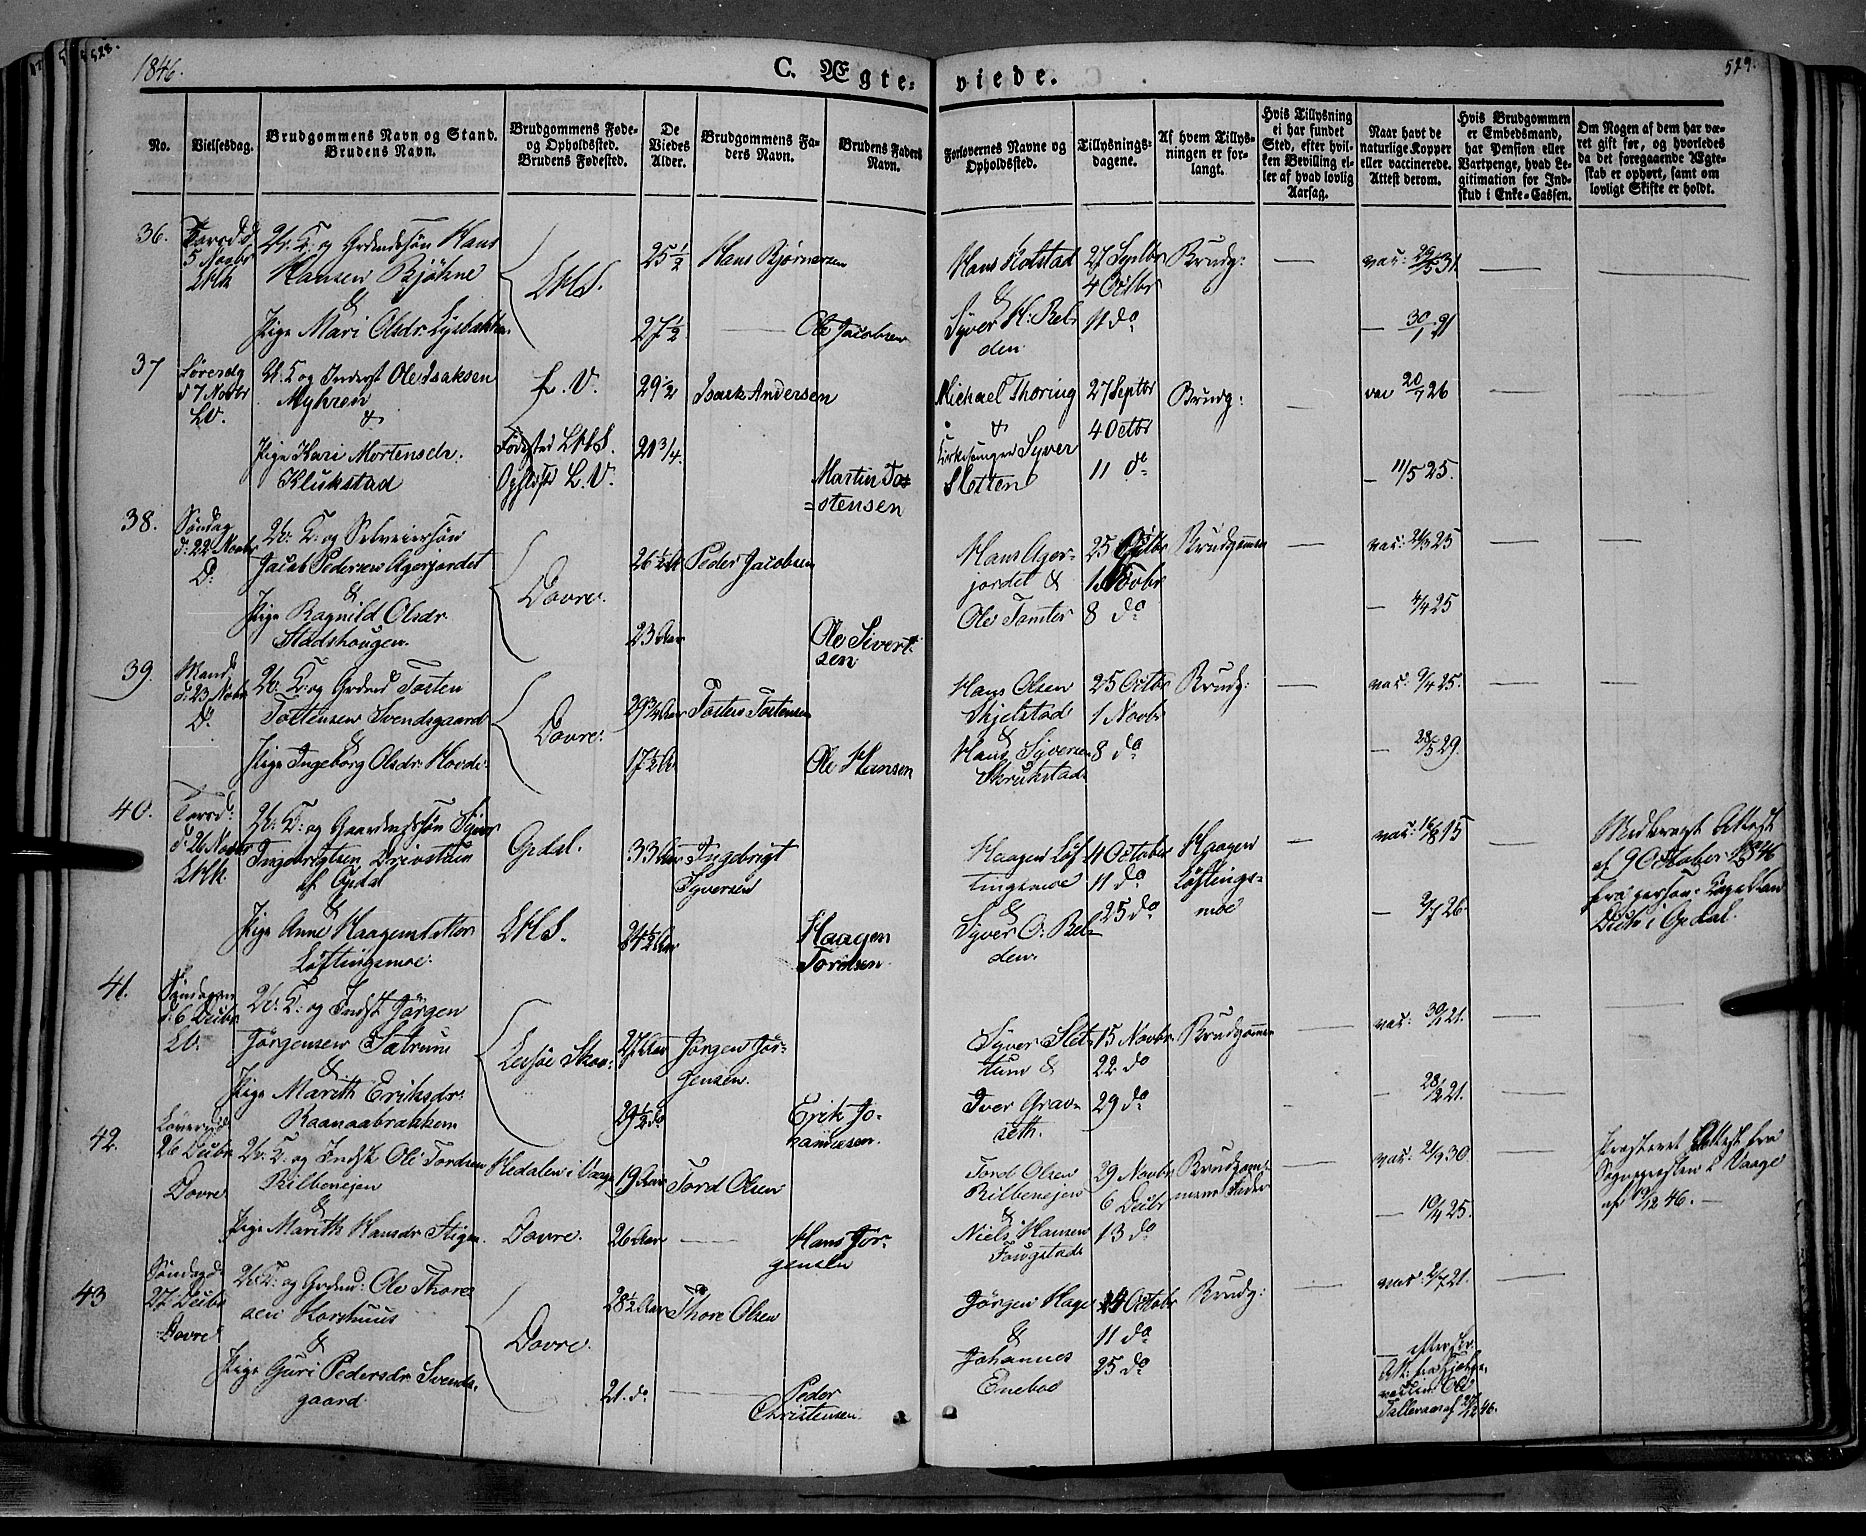 528.
529.
1846.
C. Ægteviede.
No.
Vielsesdag.
Brudgommens Navn og Stand.
Brudens Navn.
Brudgommens Føde-
og Opholdssted.
Brudens Fødested.
De
Viedes
Alder.
Brudgommens Fa-
ders Navn.
Brudens Faders
Navn.
Forlovernes Navne og
Opholdssted.
Tillysnings-
dagene.
Af hvem Tillys-
ningen er for-
langt.
Hvis Tillysning
ei har fundet
Sted, efter hvil-
ken Bevilling el-
ler af hvad lovlig
Aarsag.
Naar havt de
naturlige Kopper
eller vaccinerede.
Attest derom.
Hvis Brudgommen
er Embedsmand,
har Pension eller
Vartpenge, hvad Le-
gitimation for Ind-
skud i Enke-Cassen.
Om Nogen af dem har væ-
ret gift før, og hvorledes
da det foregaaende Ægte-
skab er ophørt, samt om
lovligt Skifte er holdt.
36.
Torsd. d.
5 Novbr
Hans
Hansen Bjøkne
&
Pige Mari Olsdr. Lysbakken
25 1/2
27 1/2
Hans Bjørnersen
Ole Jacobsen
Hans Holstad
&
Syver
den
27 Septbr
4 Octbr
11 do
Brudg:
vac: 29/5 31
30/1 21
37
Løverdg
d 7 Novbr
LV.
U. K og Inderst Ole Isaksen
Myhren
&
Pige Kari Mortensdr.
Klukstad
L. V.
Fødested
L. V.
29 1/2
20 3/4.
Isack Andersen
Martin To-
=stensen
Michael Thoring
&
Kirkesanger Syver
Sletten
27 Septbr
4 Octbr
11 do
Brudg:
vac 20/7 26
11/5 25.
38.
Søndag
d: 22 Novbr
D.
U. K: og Selveiersøn
Jacob Pedersen Agerjordet
&
Pige Ragnild Olsdr.
Stadshougen.
Dovre.
26 1/2 Aar
23 Aar
Peder Jacobsen
Ole Sivert-
sen
Hans Ager-
jordet &
Ole Tamter
25 Octbr
1 Novbr
8 do
Brudgommen
vac: 21/3 25
4/4 25
39.
Mand.
d. 23 Novbr
D.
U. K: og Grdmd Tosten
Tostensen Svendsgaard
&
Pige Ingeborg Olsdr. Hovde.
Dovre:
29 3/4 Aar
17 1/2 Ar
Tosten Tostensen
Ole Hansen
Hans Olsen
Skjelstad
&
Hans Syversen
Skrukstad
25 Octbr
1 Novbr
8 do
Brudg:
vac: 9/4 25.
28/5 29.
40.
Torsd:
d. 26 Novbr
U. K: og Gaardmdssøn Syver
Ingebrigtsen Drivstuen
af Opdal
&
Pige Anne Haagensdatter
Løftingsmoe.
Opdal.
33 Aar
24 1/2 Aar
Ingebrigt
Syversen
Haagen
Tordsen
Haagen Løf-
tingsmoe
&
Syver O. Bel-
den.
4 October
11 do
25 do
Haagen
Løftings-
moe
vac: 16/8 15
2/7 26.
Medbragt Attest
af 9 October 1846
fra person: Capellan
i Opdal.
41.
Søndagen
d. 6 Decbr
LV.
U. K: og Indst Jørgen
Jørgensen Sætrum
&
Pige Marith Eriksdr.
Raanaabrakken
27 Aar
29 1/2 do
Jørgen Jør-
gensen.
Erik Jo-
hannesen.
Syver Slet-
tum &
Iver Grav-
seth.
15 Novbr.
22 do
29 do
Brudgommen
vac: 30/1 21.
28/2 21.
42.
Løverdg
26 Decbr
Dovre
U. K: og Indst Ole Tordsen
&
Pige Marith Hansdr. Stigen.
Hedalen i Vaage
Dovre.
19 Aar
26 Aar
Tord Olsen
Hans Jør-
gensen
Tord Olsen
&
Niels Hansen
Fougstad
29 Novbr
6 Decbr
13 do
Brudgom-
mens Fader
vac: 2/9 30
10/4 25.
Attest fra
Sognepræsten i Vaage
af 19/12 46.
43
Søndag d.
27 Decbr
Dovre
U. K: og Grdmd: Ole Thore
sen Korshuus
&
Pige Guri Pedersdr. Svends-
gaard.
Dovre.
28 1/2 Aar
21. do
Thore Olsen
Peder
Christensen.
Jørgen Hage
&
Johannes
Eneboe
4 Octobr
11 do
25 do
Brudg:
vac: 2/7 21.
efter
Att: fra Hjelpe-
vaccin: Ole
Talleraas af 27/12 46.